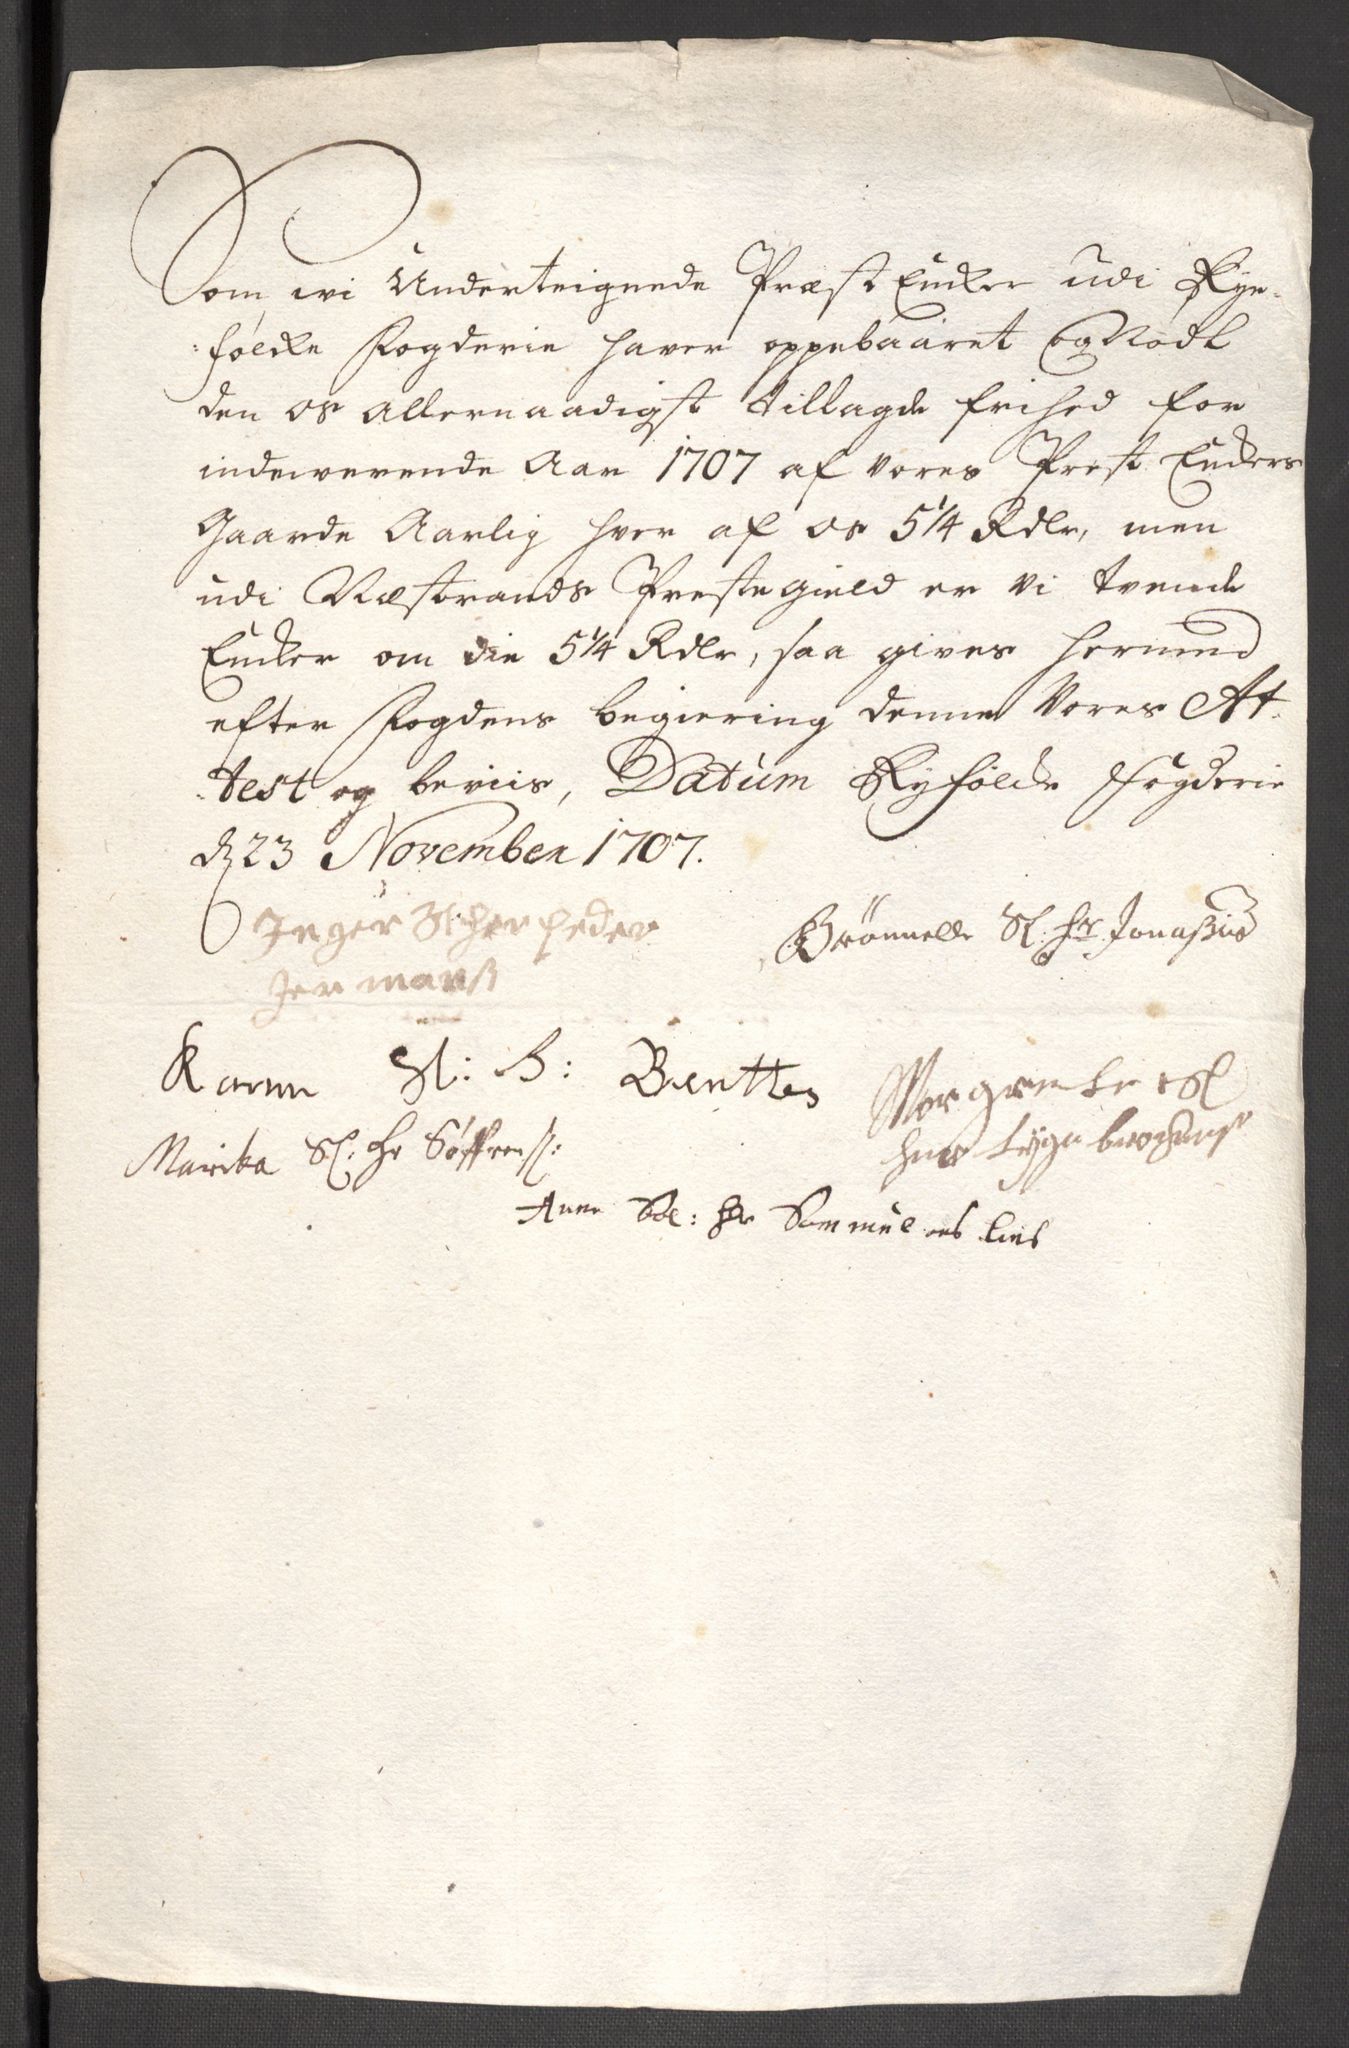 Som wi Underteignede Præst Encker udi Rye-
:fölcke Fogderie haver oppebaaret og Nødt
den os allernaadigst tillagde frihed for
indewerende Aar 1707 af vores Prest Enckers
Gaarde Aarlig hver af os 5 1/4 Rdlr, men
udi Næstrands Prestegield er vi tvende
Encker om die 5 1/4 Rdlr, saa gives hermed
efter Fogdens begiering denne Vores At-
:test og beviis, Datum Ryfölcke Fogderie
d 23 November 1707.
Inger Sl her peder
Jermanß
Brönnelle Sl. Hr Jonaßius
Karen Sl: H: Benttes
Margrete Sl
her
Maricka Sl: Hr Söffrenß:
Anne Sal: Hr Sammuels